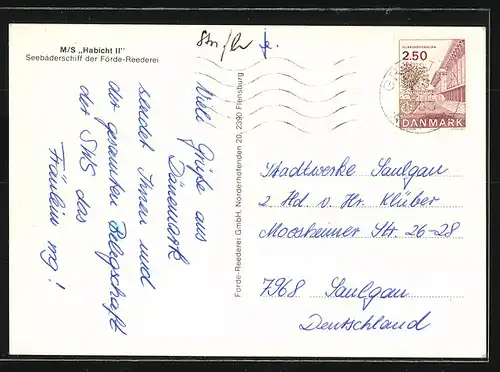 M/S „Habicht II"
Seebäderschiff der Förde-Reederei
Viele Grüße aus
Dänemark
sendet Ihnen und
der gesamten Belegschaft
der SWS das
Fräulein
Förde-Reederei GmbH, Norderhofenden 20, 2390 Flensburg
2.50
DANMARK
Stadtwerke Saulgau
z Hd v. Hr. Klüber
Moosheimer Str. 26-28
7968 Saulgau
Deutschland